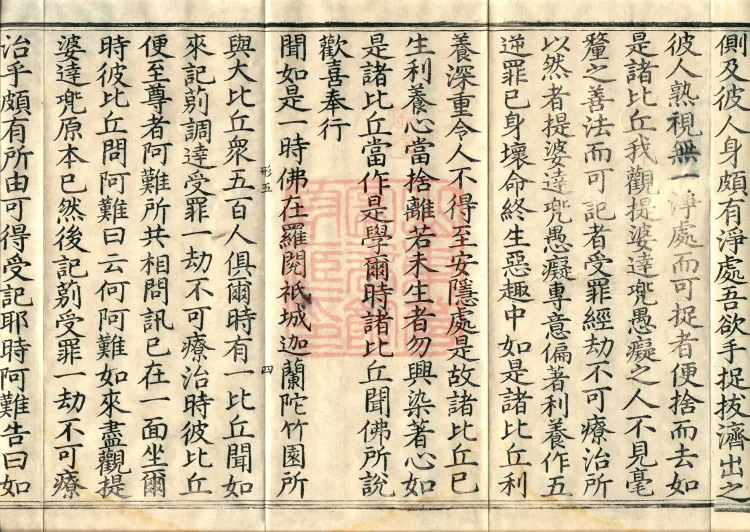 側及彼人身頗有淨處吾欲手捉拔濟出之
彼人熟視無一淨處而可捉者便捨而去如
是諸比丘我觀提婆達兜愚癡之人不見毫
釐之善法而可記者受罪經劫不可療治所
以然者提婆達兜愚癡專意偏著利養作五
逆罪已身壞命終生惡趣中如是諸比丘利
養深重令人不得至安隱處是故諸比丘已
生利養心當捨離若未生者勿興染著心如
是諸比丘當作是學爾時諸比丘聞佛所說
歡喜奉行
聞如是一時佛在羅閱祇城迦蘭陀竹園所
形五 四
與大比丘衆五百人俱爾時有一比丘聞如
來記莂調達受罪一劫不可療治時彼比丘
便至尊者阿難所共相問訊已在一面坐爾
時彼比丘問阿難曰云何阿難如來盡觀提
婆達兜原本已然後記莂受罪一劫不可療
治乎頗有所由可得受記耶時阿難告曰如